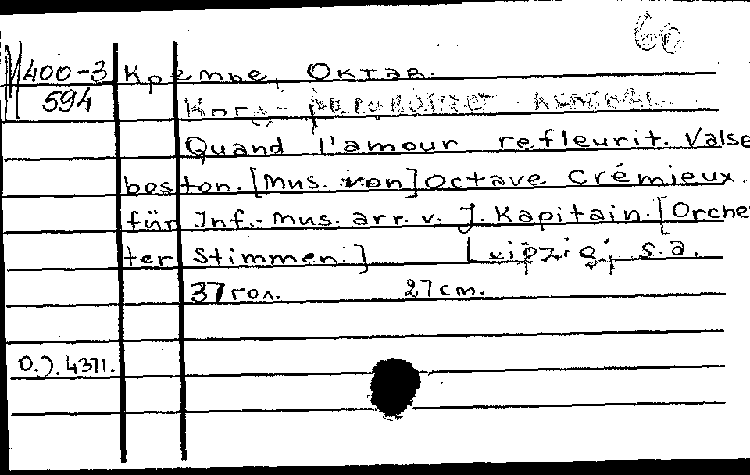 60
М400-3 Кремье, Октав.
594 Когд
Quand l'amour refleurit. Valse
boston. [Mus. von] Octave Crémieux.
für Inf.-Mus. arr. v. J. Kapitain. [Orche
ter Stimmen.] Leipzig, s.a.
37гол. 27cm.
O.J. 4371.